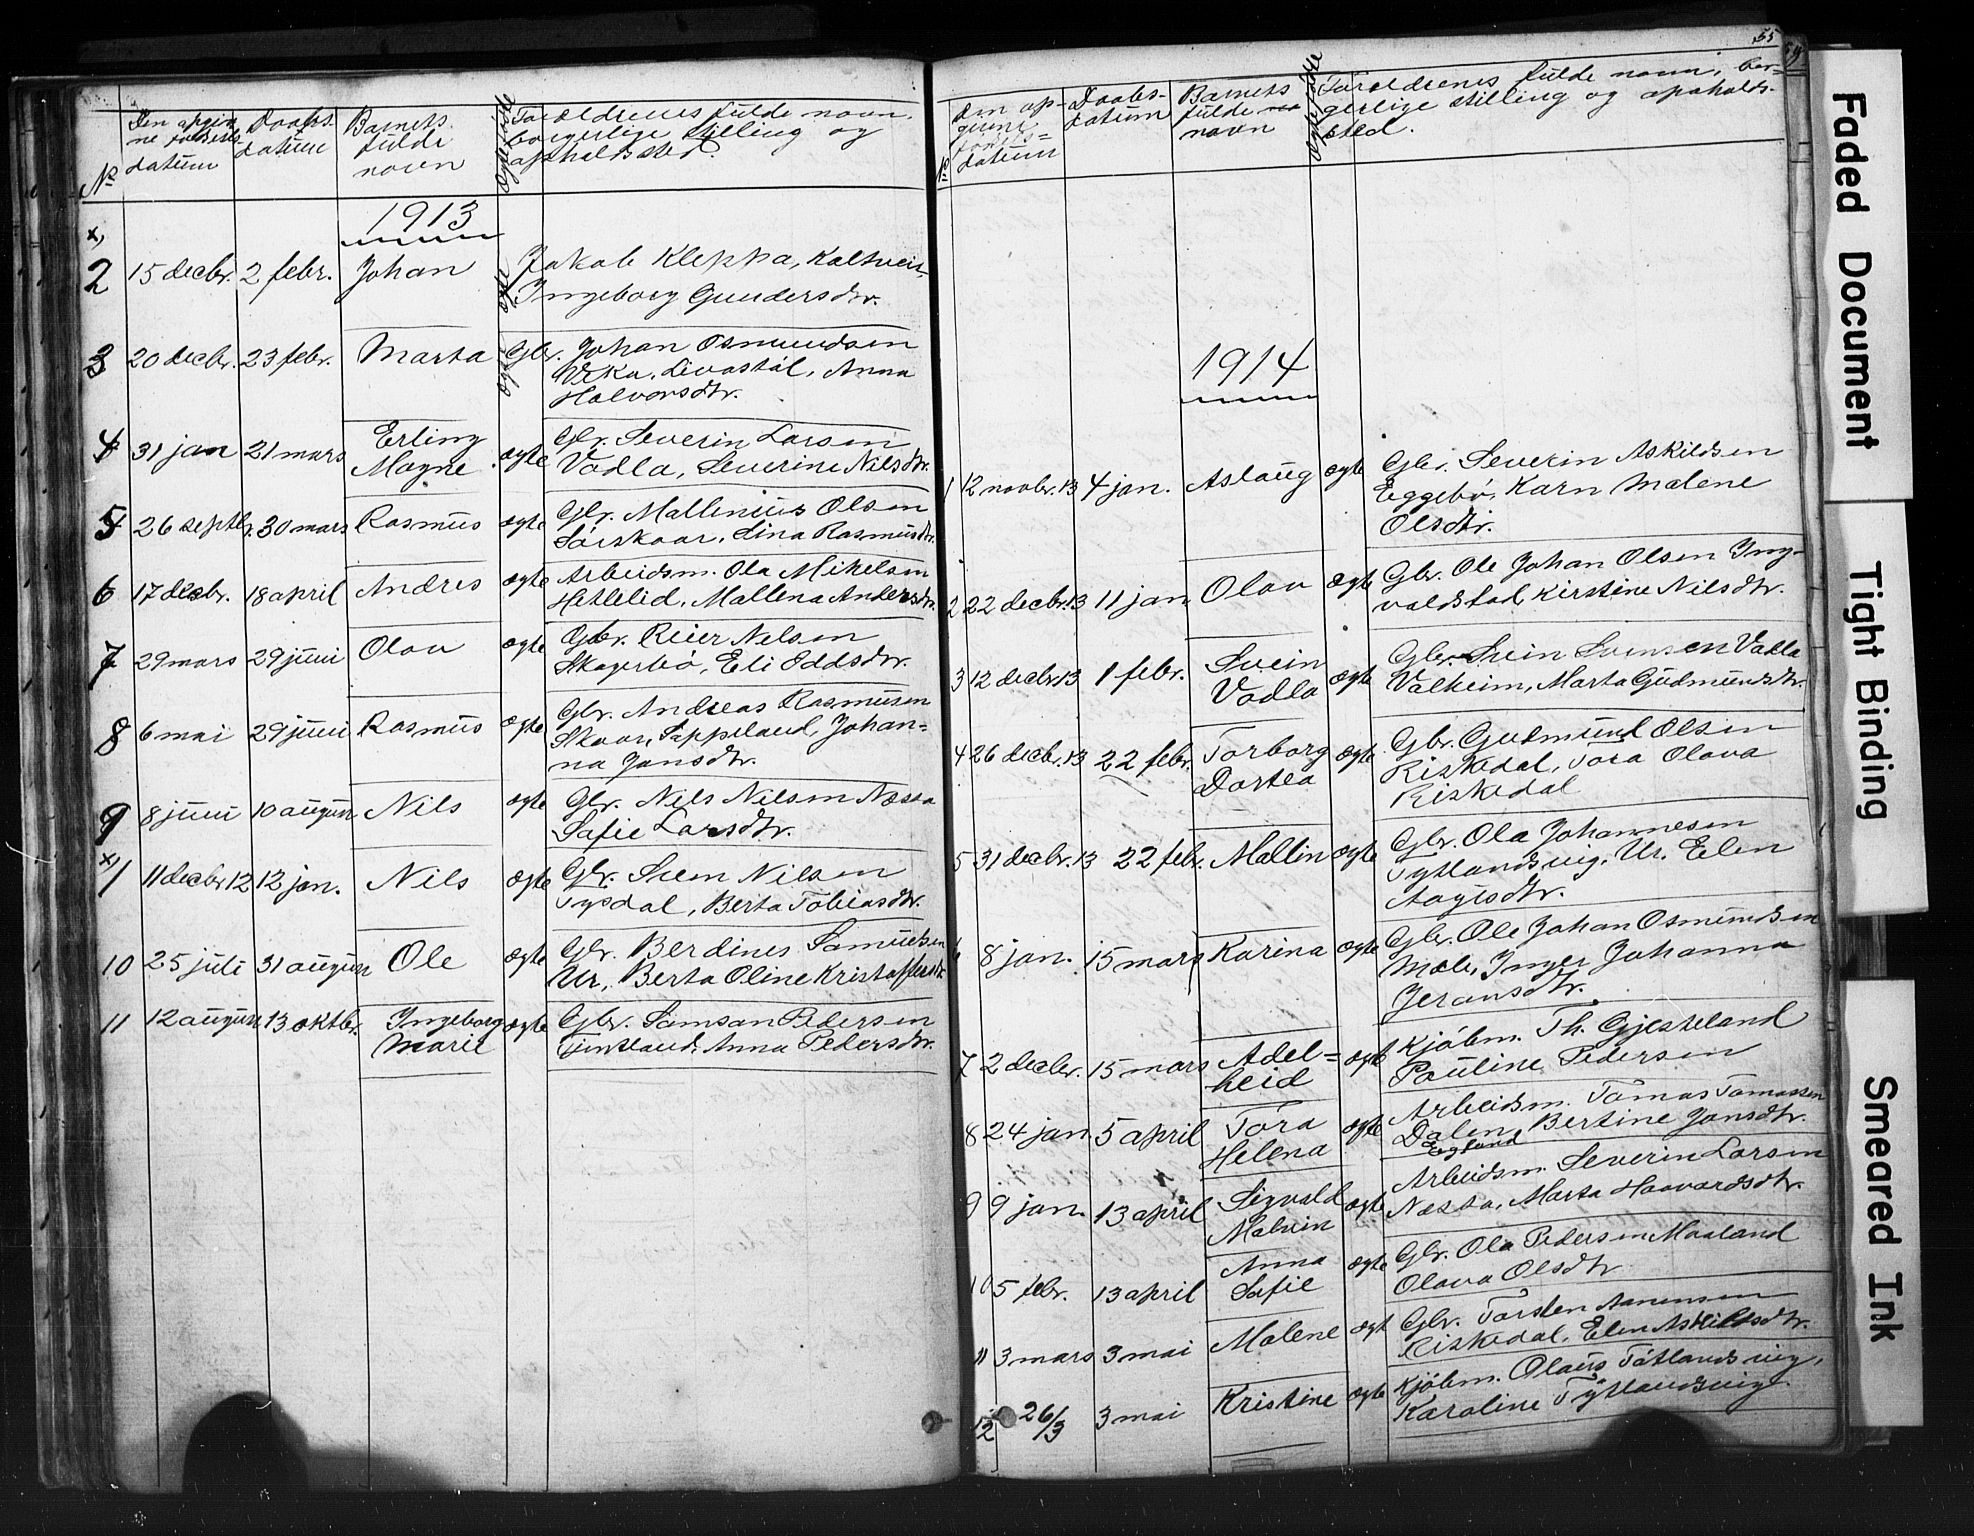 Den opgiv
ne fødsels
datum
Daabs-
datum
Barnets
fulde
navn
Foroldrenes fulde navn,
borgerlige stilling og
opholdssted.
No
1913
x,
2 15 decbr. 2 febr. Johan ægte Jakob Kleppa, Kaltveit,
Ingeborg Gundersdtr.
3 20 decbr. 23 febr. Marta ægte Gbr. Johan Osmundsen
Veka, Livastøl, Anna
Halvorsdtr.
4 31 jan 21 mars Erling
Magne. ægte Gbr. Severin Larsen
Vadla, Severine Nilsdtr.
5 26 septb. 30 mars Rasmus ægte Gbr. Mallinius Olsen
Sørskaar, Sina Rasmusdtr.
6 17 decbr. 18 april Andres ægte Arbeidsm. Ola Mikelsen
Hetlelid, Mallena Andersdtr.
7 29 mars 29 juni Olav ægte Gbr. Reier Nilsen
Skogerbø, Eli Oddsdtr.
8 6 mai 29 juni Rasmus ægte Gbr. Andreas Rasmusen
Skaar, Sappeland, Johan=
na Jonsdtr.
9 8 juni 10 august Nils ægte Gbr. Nils Nilsen Næssa
Sofie Larsdtr.
x, 1 11 decbr 12 12 jan. Nils ægte Gbr. Svein Nilsen
Tysdal, Berta Tobiasdtr.
10 25 juli 31 august Ole ægte Gbr. Berdines Samuelsen
Ur, Berta Oline Kristoffersdtr
11 12 august 13 oktbr. Ingeborg
Marie ægte Gbr. Samson Pedersen
Fintland, Anna Pedersdtr.
55
No
Den op-
givne
fødsels=
datum
Daabs-
datum
Barnets
fulde
navn
Foroldrenes fulde navn, bor=
gerlige stilling og opholds-
sted.
1914
1 12 novbr. 13 4 jan. Aslaug ægte Gbr. Severin Askildsen
Eggebø, Karn Malene
Olsdtr.
2 22 decbr. 13 11 jan Olav ægte Gbr. Ole Johan Olsen Ing-
valdstad, Kirstine Nilsdtr.
3 12 decbr 13 1 febr. Svein
Vadla ægte Gbr. Svein Svensen Vadla
Valheim, Marta Gudmundsdtr.
4 26 decbr. 13 22 febr. Torborg
Dortea ægte Gbr. Gudmund Olsen
Riskedal, Tora Olava
Riskedal
5 31 decbr. 13 22 febr. Mallin ægte Gbr. Ola Johannesen
Tytlandsvig, Ur. Elen
Aagesdtr.
6 8 jan. 15 mars Karina ægte Gbr. Ole Johan Osmundsen
Mæle, Inger Johanna
Jeransdtr.
7 2 decbr. 15 mars Adel=
heid ægte Kjøbm. Th. Gjesteland
Pauline Pedersen
8 24 jan. 5 april Tora
Helena ægte Arbeidsm. Tomas Tomassen
Dalen, Bertine Jonsdtr.
Egland
9 9 jan. 13 april Sigvald
Malvin ægte Arbeidsm. Severin Larsen
Næssa, Marta Haavardsdtr.
10 5 febr. 13 april Anna
Sofie ægte Gbr. Ola Pedersen Maaland
Olava Olsdtr
11 3 mars 3 mai Malene ægt Gbr. Torsten Aanensen
Riskedal, Elen Askildsdtr.
12 26/3 3 mai Kristine ægte Kjøbm. Olaus Tøtlandsvig,
Karoline Tytlandsvig.
Faded Document
Tight Binding
Smeared Ink